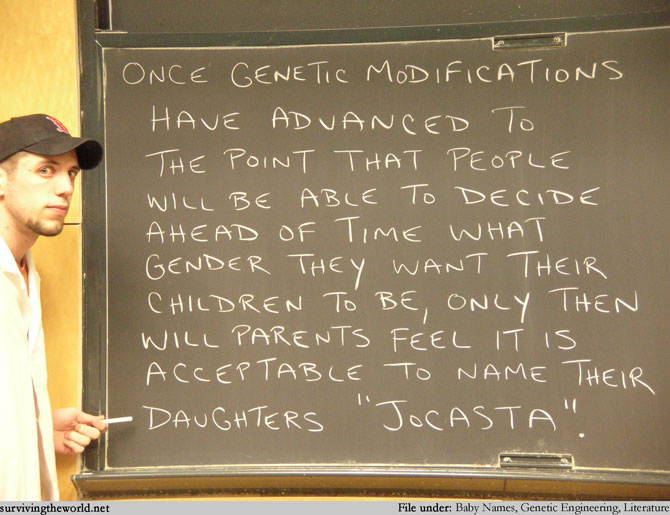 ONCE GENETIC MODIFICATIONS
HAVE ADVANCED TO
THE POINT THAT PEOPLE
WILL BE ABLE TO DECIDE
AHEAD OF TIME WHAT
GENDER THEY WANT THEIR
CHILDREN TO BE, ONLY THEN
WILL PARENTS FEEL IT IS
ACCEPTABLE TO NAME THEIR
DAUGHTERS "JOCASTA".
survivingtheworld.net
File under: Baby Names, Genetic Engineering, Literature